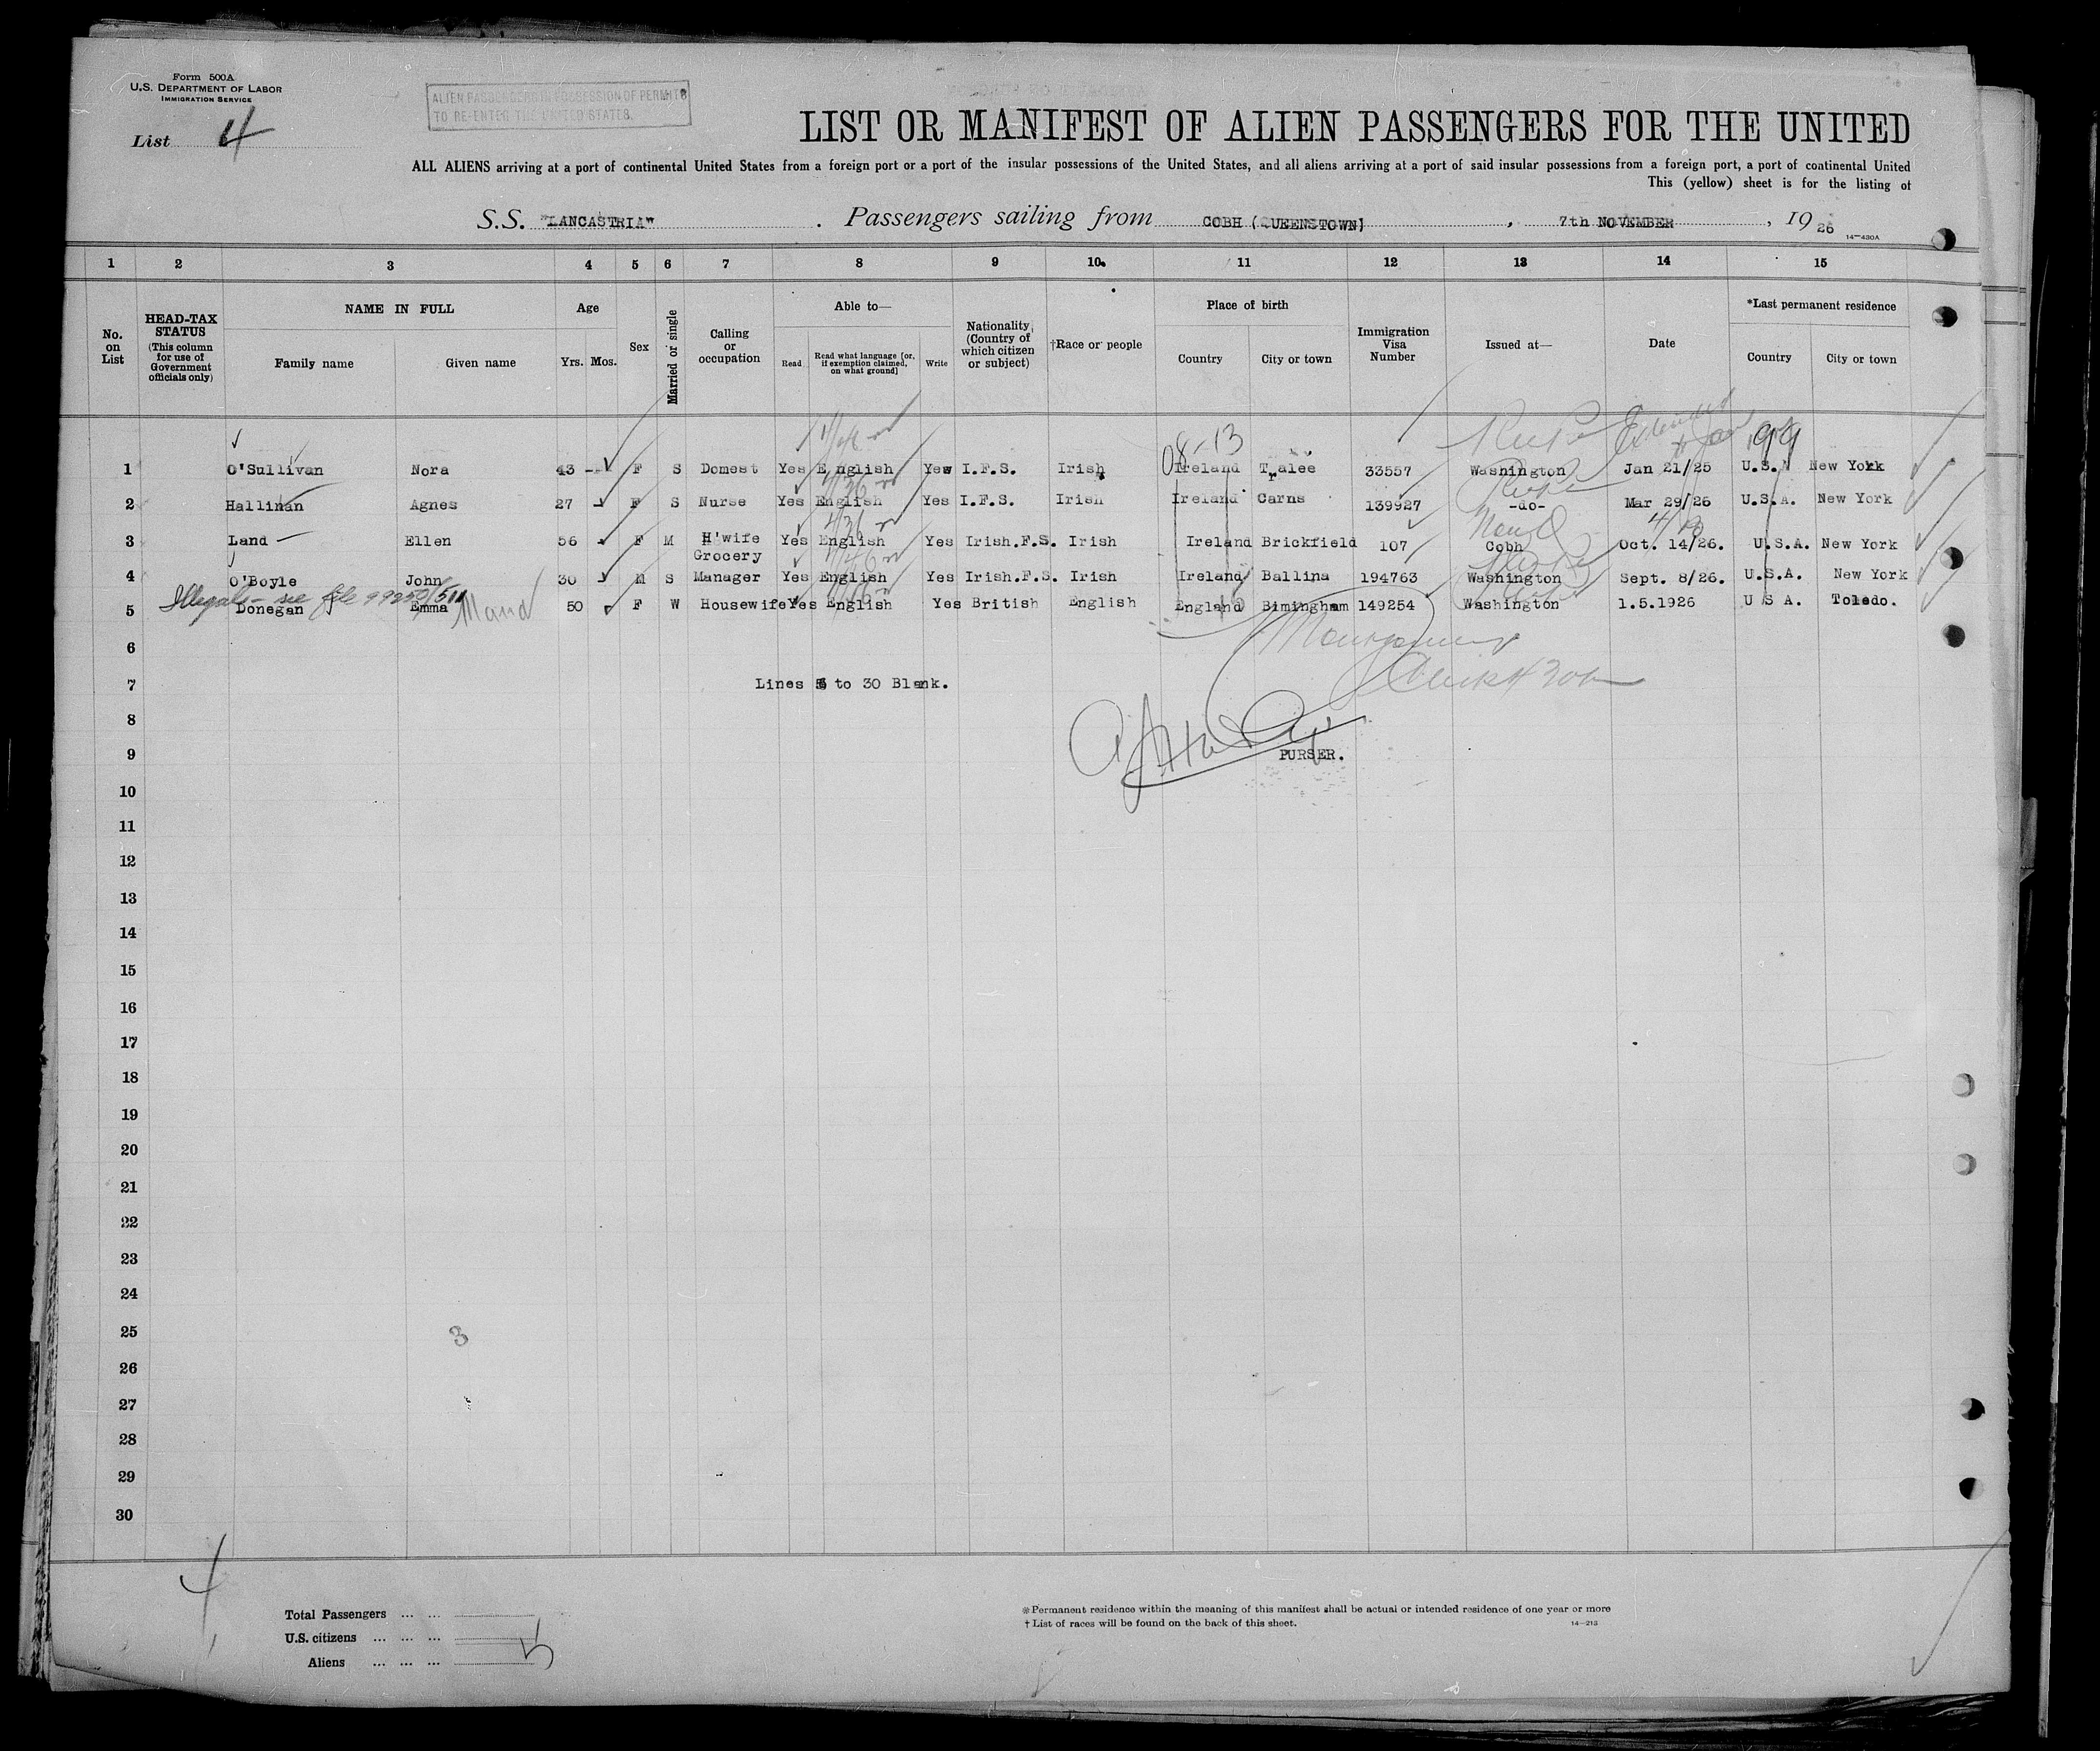 Form 500A
U.S. DEPARTMENT OF LABOR
IMMIGRATION SERVICE
ALIEN PASSENGERS IN POSSESSION OF PERMITS
TO RE-ENTER THE UNITED STATES.
List 4
LIST OR MANIFEST OF ALIEN PASSENGERS FOR THE UNITED
ALL ALIENS arriving at a port of continental United States from a foreign port or a port of the insular possessions of the United States, and all aliens arriving at a port of said insular possessions from a foreign port, a port of continental United
This (yellow) sheet is for the listing of
S.S. "LANCASTRIA" . Passengers sailing from COBH (QUEENSTOWN) , 7th NOVEMBER , 19 26
14—430A
1 2 3 4 5 6 7 8 9 10. 11 12 13 14 15
No. on List
HEAD-TAX STATUS (This column for use of Government officials only)
NAME IN FULL
Family name Given name
Age
Yrs. Mos.
Sex
Married or single
Calling or occupation
Able to—
Read
Read what language [or, if exemption claimed, on what ground]
Write
Nationality (Country of which citizen or subject)
†Race or people
Place of birth
Country City or town
Immigration Visa Number
Issued at—
Date
*Last permanent residence
Country City or town
08-13
1 O'Sullivan Nora 43 F S Domest Yes English Yes I.F.S. Irish Ireland Tralee 33557 Washington Jan 21/25 U.S. New York
2 Hallinan Agnes 27 F S Nurse Yes English Yes I.F.S. Irish Ireland Carns 139927 -do- Mar 29/26 U.S.A. New York
3 Land Ellen 56 F M H'wife Yes English Yes Irish.F.S. Irish Ireland Brickfield 107 Cobh Oct. 14/26. U.S.A. New York
4 O'Boyle John 30 M S Grocery Manager Yes English Yes Irish.F.S. Irish Ireland Ballina 194763 Washington Sept. 8/26. U.S.A. New York
Illegal - see file 99250/511
5 Donegan Emma Maud 50 F W Housewife Yes English Yes British English England Bimingham 149254 Washington 1.5.1926 U S A. Toledo.
6
7 Lines 6 to 30 Blank.
8
9 PURSER.
10
11
12
13
14
15
16
17
18
19
20
21
22
23
24
25 3
26
27
28
29
30
4
Total Passengers ... ...
U.S. citizens ... ... ...
Aliens ... ... ... 5
*Permanent residence within the meaning of this manifest shall be actual or intended residence of one year or more
† List of races will be found on the back of this sheet.
14—213